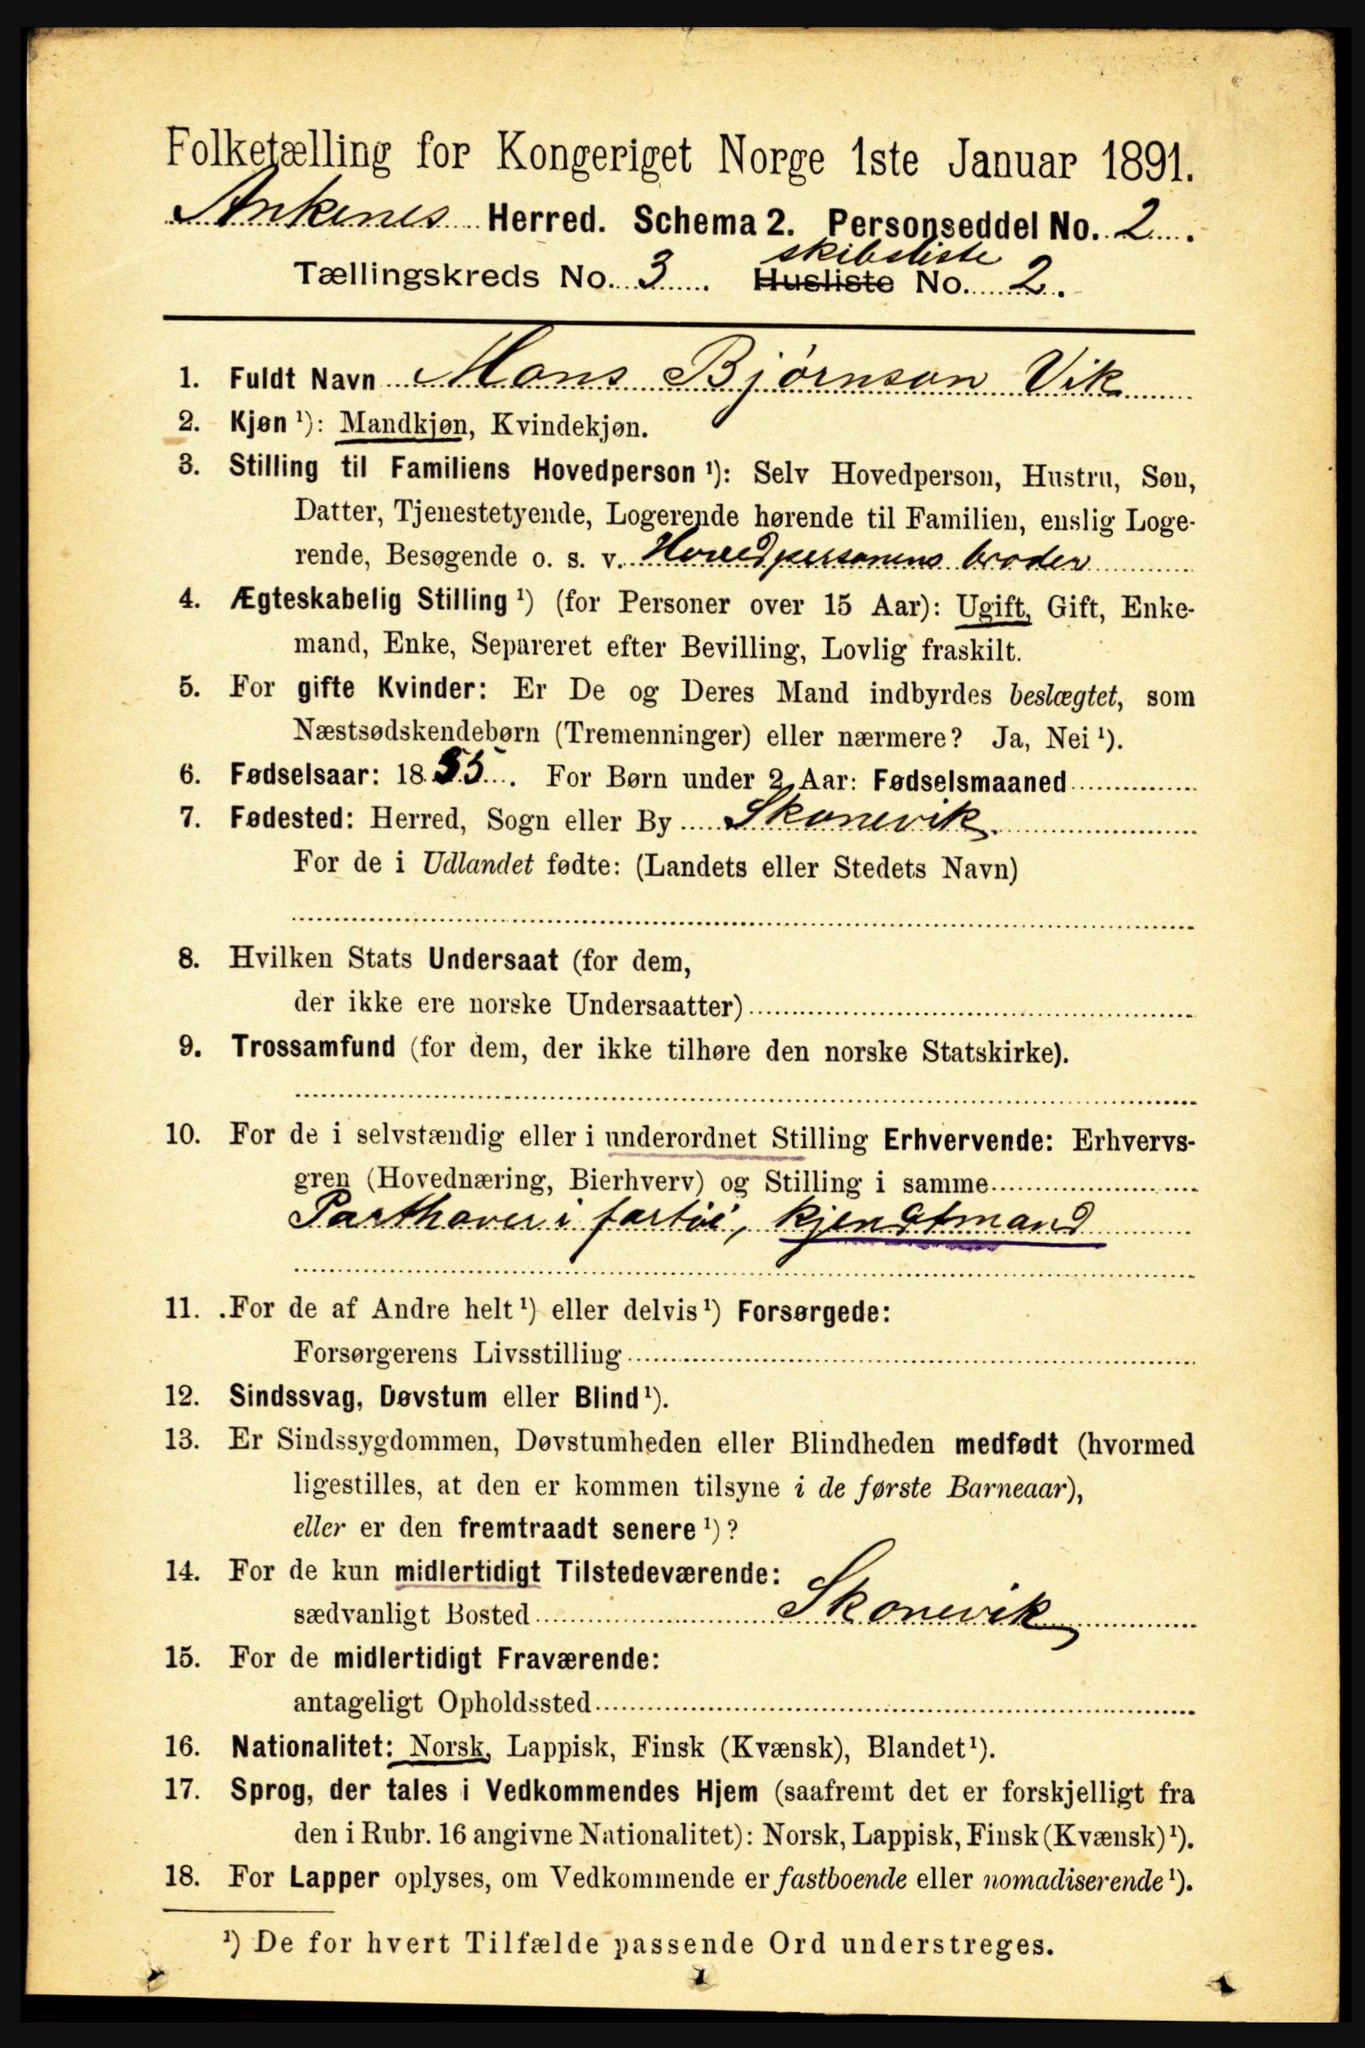 Folketælling for Kongeriget Norge 1ste Januar 1891.
Ankenes Herred. Schema 2. Personseddel No. 2.
skibsliste
Tællingskreds No. 3. Husliste No. 2.
1. Fuldt Navn Mons Bjørnson Vik
2. Kjøn ¹): Mandkjøn, Kvindekjøn.
3. Stilling til Familiens Hovedperson ¹): Selv Hovedperson, Hustru, Søn,
Datter, Tjenestetyende, Logerende hørende til Familien, enslig Loge-
rende, Besøgende o. s. v. Hovedpersonens broder
4. Ægteskabelig Stilling ¹) (for Personer over 15 Aar): Ugift, Gift, Enke-
mand, Enke, Separeret efter Bevilling, Lovlig fraskilt.
5. For gifte Kvinder: Er De og Deres Mand indbyrdes beslægtet, som
Næstsødskendebørn (Tremenninger) eller nærmere? Ja, Nei ¹).
6. Fødselsaar: 1855. For Børn under 2 Aar: Fødselsmaaned
7. Fødested: Herred, Sogn eller By Skonevik
For de i Udlandet fødte: (Landets eller Stedets Navn)
8. Hvilken Stats Undersaat (for dem,
der ikke ere norske Undersaatter)
9. Trossamfund (for dem, der ikke tilhøre den norske Statskirke).
10. For de i selvstændig eller i underordnet Stilling Erhvervende: Erhvervs-
gren (Hovednæring, Bierhverv) og Stilling i samme
Parthaver i fartøi, kjendtmand
11. For de af Andre helt ¹) eller delvis ¹) Forsørgede:
Forsørgerens Livsstilling
12. Sindssvag, Døvstum eller Blind ¹).
13. Er Sindssygdommen, Døvstumheden eller Blindheden medfødt (hvormed
ligestilles, at den er kommen tilsyne i de første Barneaar),
eller er den fremtraadt senere ¹)?
14. For de kun midlertidigt Tilstedeværende:
sædvanligt Bosted Skonevik
15. For de midlertidigt Fraværende:
antageligt Opholdssted
16. Nationalitet: Norsk, Lappisk, Finsk (Kvænsk), Blandet ¹).
17. Sprog, der tales i Vedkommendes Hjem (saafremt det er forskjelligt fra
den i Rubr. 16 angivne Nationalitet): Norsk, Lappisk, Finsk (Kvænsk) ¹).
18. For Lapper oplyses, om Vedkommende er fastboende eller nomadiserende ¹).
¹) De for hvert Tilfælde passende Ord understreges.